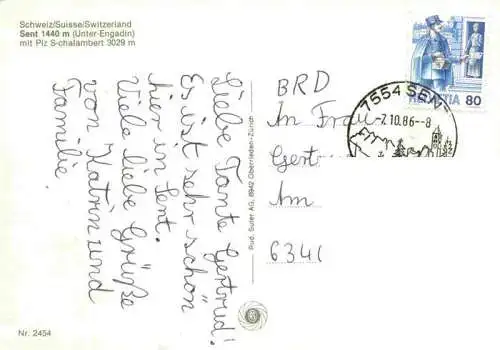 Schweiz/Suisse/Switzerland
Sent 1440 m (Unter-Engadin)
mit Piz S-chalambert 3029 m
Liebe Tante Gertrud!
Es ist sehr schön
hier in Sent.
Viele liebe Grüße
von Katrin und
Familie.
Rud. Suter AG, 8942 Oberrieden-Zürich
HELVETIA 80
7554 SENT
-2.10.86-8
BRD
An Frau
Gert
Am
6340
Nr. 2454